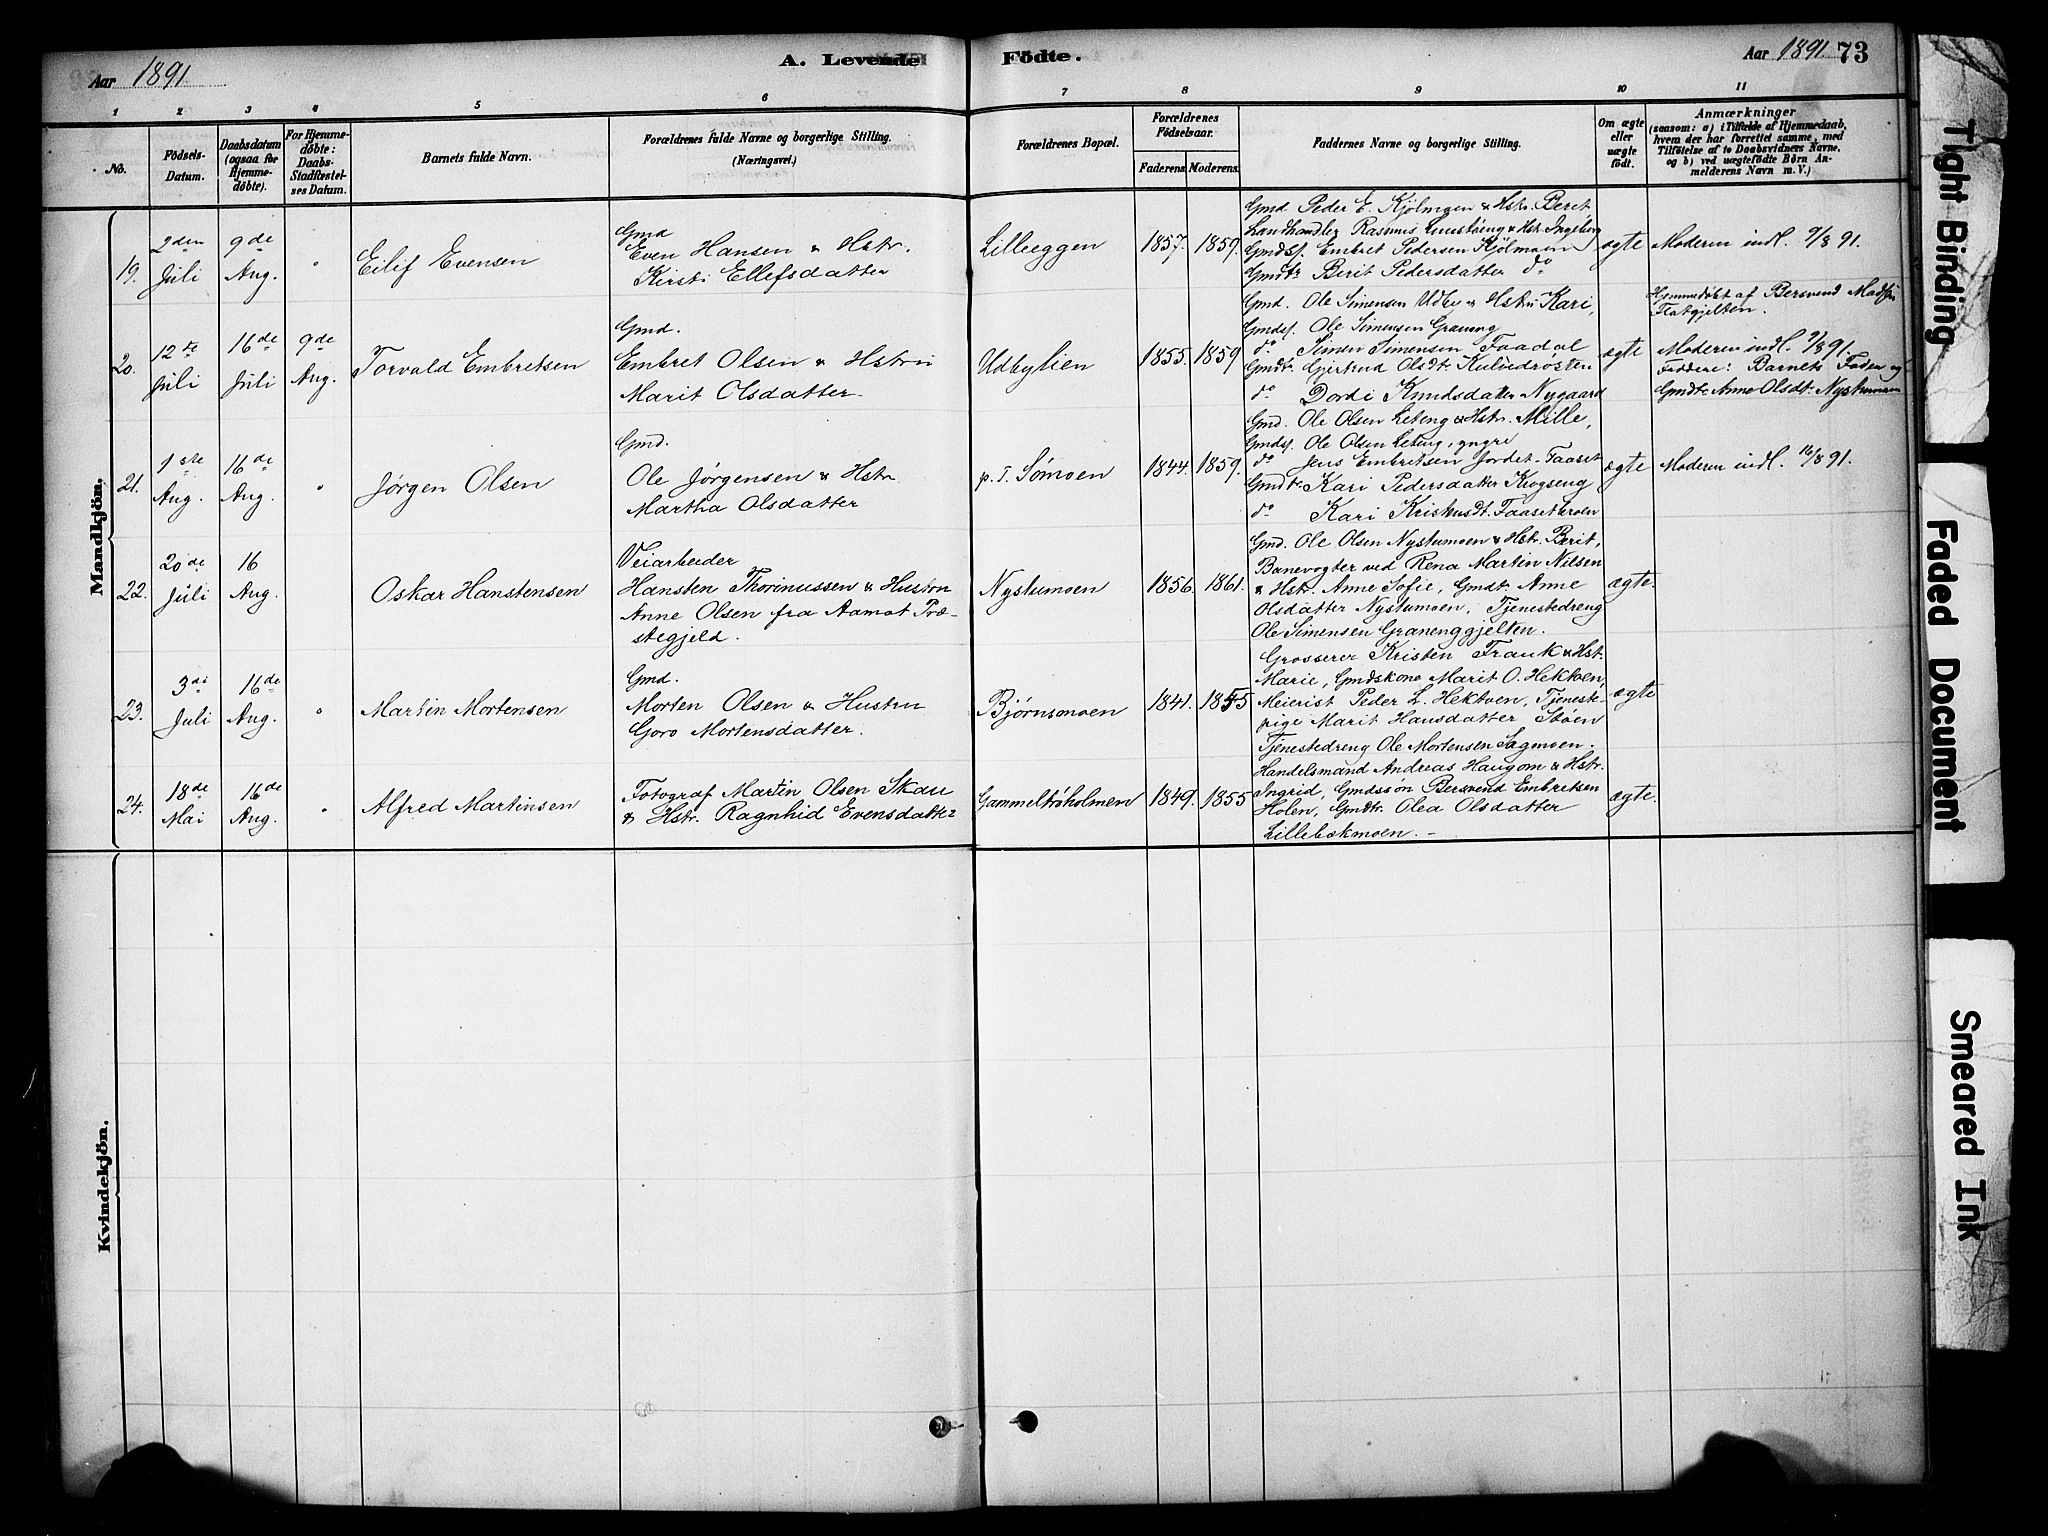 Aar 1891
A. Levende Födte.
Aar 1891 73
1 2 3 4 5 6 7 8 9 10 11
No.
Födsels-
Datum.
Daabsdatum
(ogsaa for
Hjemme-
döbte).
For Hjemme-
döbte:
Daabs-
Stadfæstel-
ses Datum.
Barnets fulde Navn.
Forældrenes fulde Navne og borgerlige Stilling.
(Næringsvei.)
Forældrenes Bopæl.
Forældrenes
Födselsaar.
Faderens. Moderens.
Faddernes Navne og borgerlige Stilling.
Om ægte
eller
uægte
födt.
Anmærkninger
(saasom: a) i Tilfælde af Hjemmedaab,
hvem der har forrettet samme, med
Tilföielse af to Daabsvidners Navne,
og b) ved uægtefödte Börn An-
melderens Navn m. V.)
Mandkjön.
19.
2den
Juli
9de
Aug.
"
Eilif Evensen
Gmd
Even Hansen & Hstr.
Kirsti Ellefsdatter
Lilleeggen
1857. 1859.
Gmd Peder E. Kjölmoen & Hstr. Berit
Landhandler Rasmus & Hstr. Ingeborg
Gmdsf. Embret Pedersen Kjölmoen
Gmdtr. Berit Pedersdatter do
ægte
Moderen indl. 9/8 91.
20.
12te
Juli
16de
Juli
9de
Aug.
Torvald Embretsen
Gmd.
Embret Olsen & Hstru
Marit Olsdatter
Udbylien
1855. 1859
Gmd. Ole Simensen Udby & Hstru Kari,
Gmdsf. Ole Simensen Graneng
do Simen Simensen Faadal
Gmdtr. Gjertrud Olsdtr. Kulvedrösten
do Dordi Knudsdatter Nygaard
ægte
Hjemmedöbt af Bersvend Madsen
Flatgjelten.
Moderen indl. 9/8 91.
Faddere: Barnets Fader og
Gmdtr. Anne Olsdtr. Nystumoen
21.
1ste
Aug.
16de
Aug.
"
Jørgen Olsen
Gmd.
Ole Jørgensen & Hstr.
Martha Olsdatter
p. T. Sømoen
1844. 1859.
Gmd. Ole Olsen & Hstr. Mille,
Gmdsf. Ole Olsen yngre
do Jens Embretsen Jordet-Faaset
Gmdtr. Kari Pedersdatter Krogseng
do Kari
ægte
Moderen indl. 16/8 91.
22.
20de
Juli
16
Aug.
Oskar Hanstensen
Veiarbeider
Hansten Thorinussen & Hustru
Anne Olsen fra Aamot Præ-
stegjeld.
Nystumoen
1856. 1861.
Gmd. Ole Olsen Nystumoen & Hstr. Berit,
Banevogter ved Rena Martin Nilsen
& Hstr. Anne Sofie, Gmdtr. Anne
Olsdatter Nystumoen, Tjenestedreng
Ole Simensen Granenggjelten.
ægte.
23.
3di
Juli
16de
Aug.
"
Martin Mortensen
Gmd.
Morten Olsen & Hustru
Goro Mortensdatter.
Bjørnsmoen
1841. 1855
Grosserer Kristen Frank & Hst.
Marie, Gmdskone Marit O. Hektoen,
Meierist Peder L. Hektoen, Tjeneste-
pige Marit Hansdatter Støen
Tjenestedreng Ole Mortensen Sagmoen.
ægte
24.
18de
Mai
16de
Aug.
"
Alfred Martinsen
Fotograf Martin Olsen Skau
& Hstr. Ragnhid Evensdatter
Gammeltrøholmen
1849. 1855
Handelsmand Andreas Haugom & Hstr.
Ingrid, Gmdssøn Bersvend Embretsen
Holen, Gmdtr. Olea Olsdatter
Lillebækmoen. —
ægte.
Kvindekjön.
Tight Binding
Faded Document
Smeared Ink